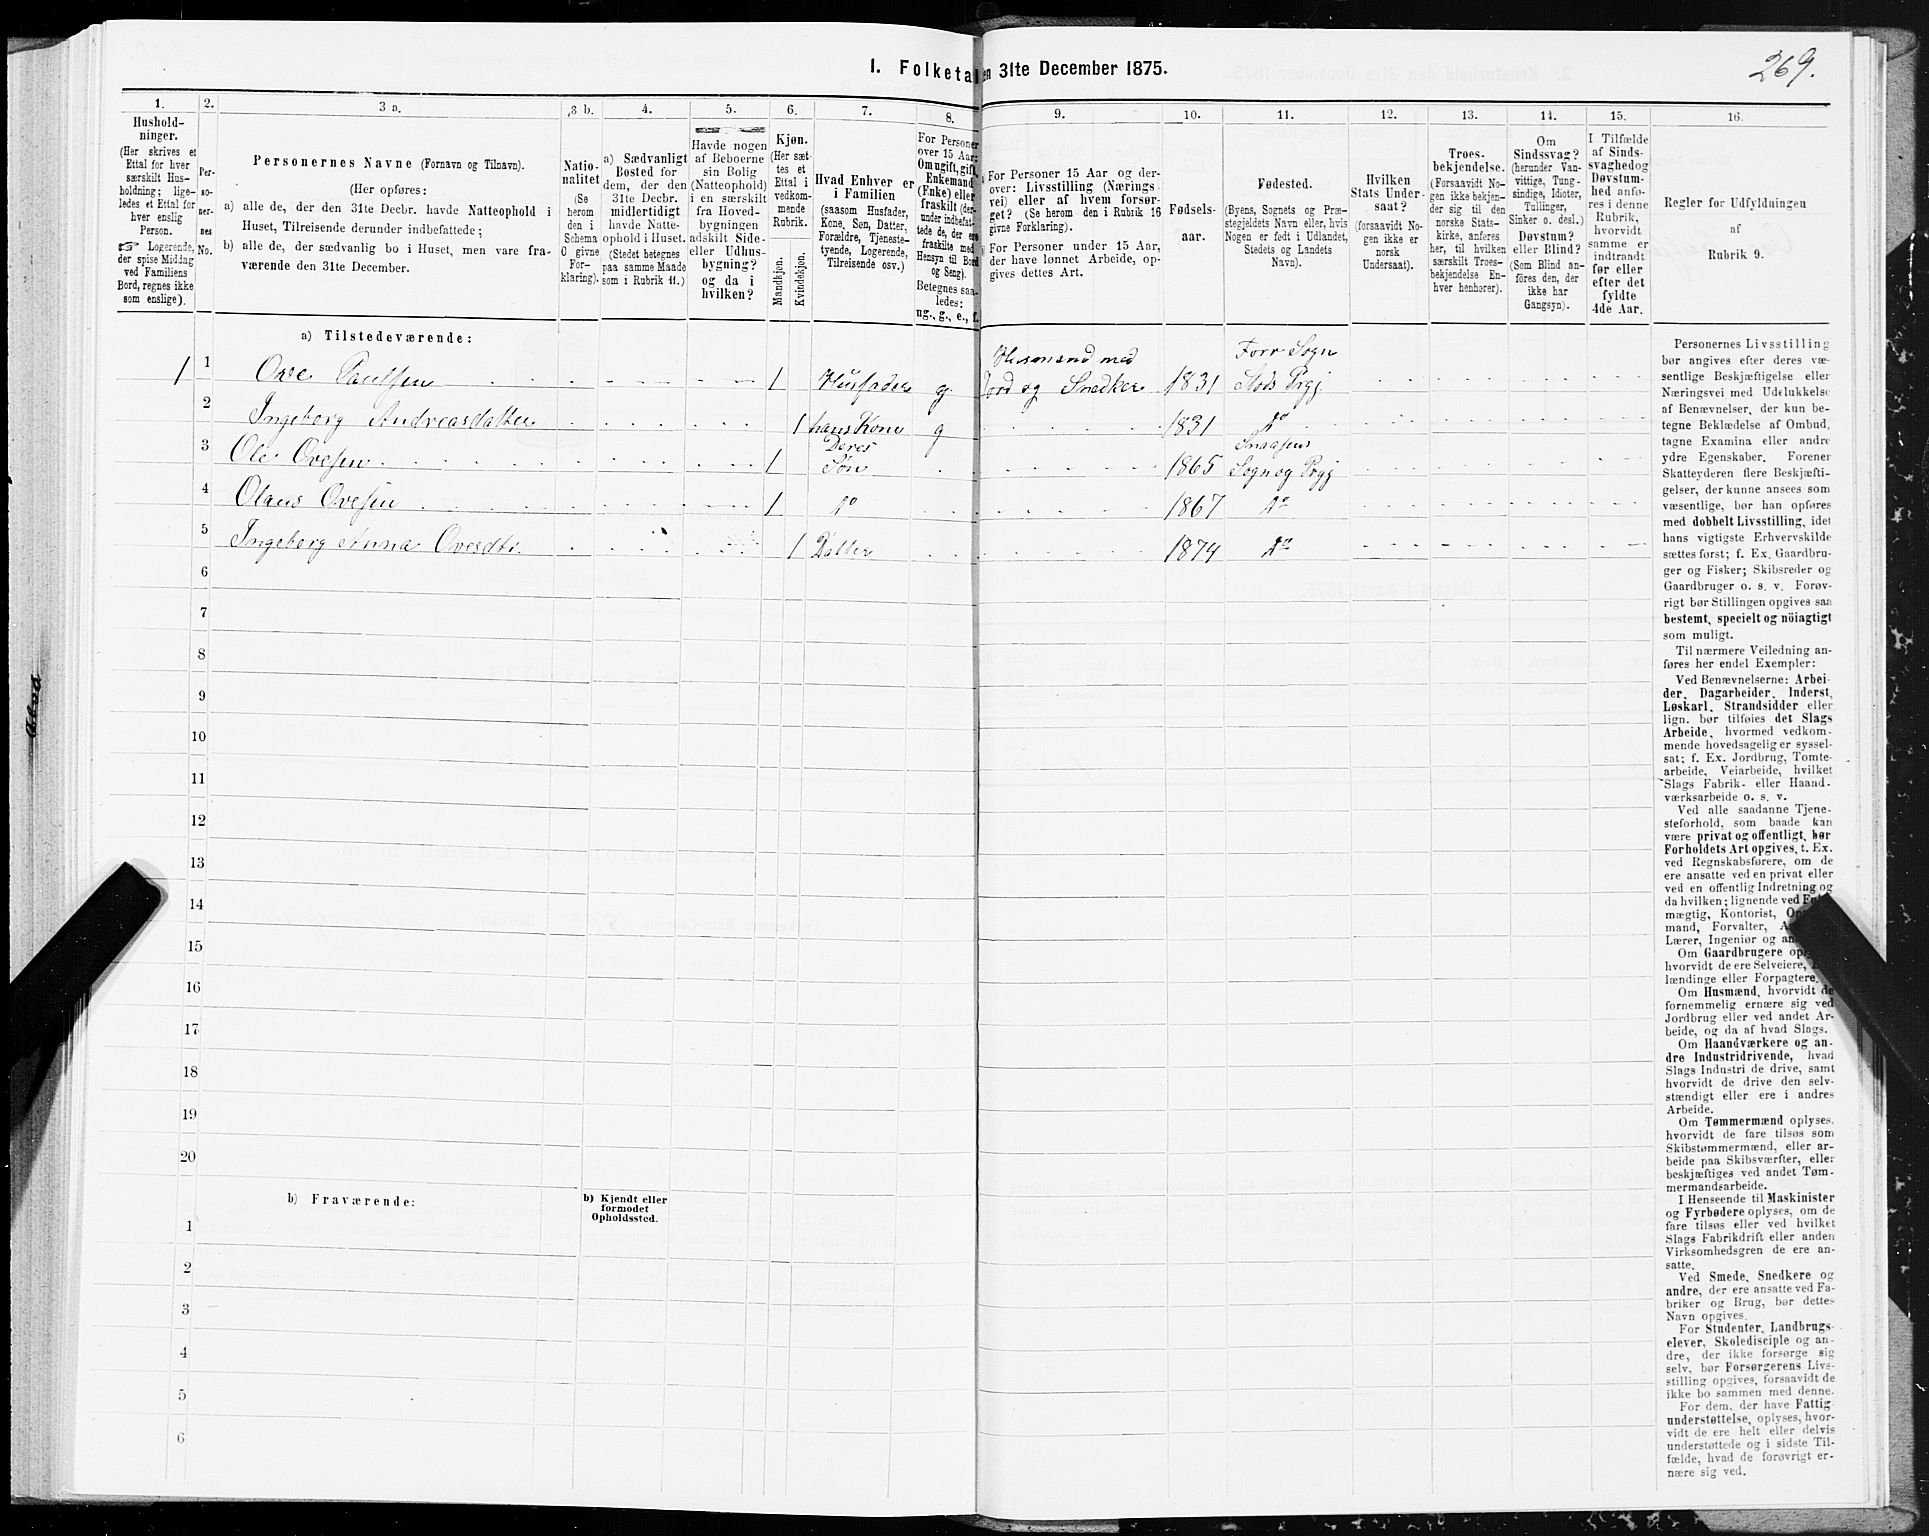 269.
1. Folketa en 31te December 1875.
1. 2. 3 a. 3 b. 4. 5. 6. 7. 8. 9. 10. 11. 12. 13. 14. 15. 16.
Hushold-
ninger.
(Her skrives et
Ettal for hver
særskilt Hus-
holdning; lige-
ledes et Ettal for
hver enslig
Person.
Logerende,
der spise Middag
ved Familiens
Bord, regnes ikke
som enslige).
Per-
so-
ner-
nes
No.
Personernes Navne (Fornavn og Tilnavn).
(Her opføres:
a) alle de, der den 31te Decbr. havde Natteophold i
Huset, Tilreisende derunder indbefattede;
b) alle de, der sædvanlig bo i Huset, men vare fra-
værende den 31te December.
Natio-
nalitet
(Se
herom
den i
Schema
O givne
For-
klaring).
a) Sædvanligt
Bosted for
dem, der den
31te Decbr.
midlertidigt
havde Natte-
ophold i Huset.
(Stedet betegnes
paa samme Maade
som i Rubrik 11.)
Havde nogen
af Beboerne
sin Bolig
(Natteophold)
i en særskilt
fra Hoved-
bygningen
adskilt Side-
eller Udhus-
bygning?
og da i
hvilken?
Kjøn.
(Her sæt-
tes et
Ettal i
vedkom-
mende
Rubrik.)
Mandkjøn.
Kvindekjøn.
Hvad Enhver er
i Familien
(saasom Husfader,
Kone, Søn, Datter,
Forældre, Tjeneste-
tyende, Logerende,
Tilreisende osv.)
For Personer
over 15 Aar:
Om ugift, gift,
Enkemand
(Enke) eller
fraskilt (der-
under indbefat-
tede de, der ere
fraskilte med
Hensyn til Bord
og Seng).
Betegnes saa-
ledes:
ug., g., e., f.
For Personer 15 Aar og der-
over: Livsstilling (Nærings-
vei) eller af hvem forsør-
get? (Se herom den i Rubrik 16
givne Forklaring).
For Personer under 15 Aar,
der have lønnet Arbeide, op-
gives dettes Art.
Fødsels-
aar.
Fødested.
(Byens, Sognets og Præ-
stegjeldets Navn eller, hvis
Nogen er født i Udlandet,
Stedets og Landets
Navn).
Hvilken
Stats Under-
saat?
(forsaavidt No-
gen ikke er
norsk
Undersaat).
Troes-
bekjendelse.
(Forsaavidt No-
gen ikke bekjen-
der sig til den
norske Stats-
kirke, anføres
her, til hvilken
særskilt Troes-
bekjendelse En-
hver henhører).
Om
Sindssvag?
(herunder Van-
vittige, Tung-
sindige, Idioter,
Tullinger,
Sinker o. desl.)
Døvstum?
eller Blind?
(Som Blind an-
føres den, der
ikke har
Gangsyn).
I Tilfælde
af Sinds-
svaghed og
Døvstum-
hed anfø-
res i denne
Rubrik,
hvorvidt
samme er
indtraadt
før eller
efter det
fyldte
4de Aar.
Regler for Udfyldningen
af
Rubrik 9.
a) Tilstedeværende:
Husmand med Forr Sogn
1 1 Ove Paulsen 1 Husfader g Jord og Snedker 1831 Stods Prgj
2 Ingeborg Andreasdatter 1 hans Kone g 1831 do
Deres Snaasens
3 Ole Ovesen 1 Søn 1865 Sogn og Prgj
4 Olaus Ovesen 1 do 1867 do
5 Ingeborg Anna Ovesdtr. 1 Datter 1874 do
6
7
8
9
10
11
12
13
14
15
16
17
18
19
20
b) Fraværende:
b) Kjendt eller
formodet
Opholdssted.
1
2
3
4
5
6
Personernes Livsstilling
bør angives efter deres væ-
sentlige Beskjæftigelse eller
Næringsvei med Udelukkelse
af Benævnelser, der kun be-
tegne Beklædelse af Ombud,
tagne Examina eller andre
ydre Egenskaber. Forener
Skatteyderen flere Beskjæfti-
gelser, der kunne ansees som
væsentlige, bør han opføres
med dobbelt Livsstilling, idet
hans vigtigste Erhvervskilde
sættes først; f. Ex. Gaardbru-
ger og Fisker; Skibsreder og
Gaardbruger o. s. v. Forøv-
rigt bør Stillingen opgives saa
bestemt, specielt og nöiagtigt
som muligt.
Til nærmere Veiledning an-
føres her endel Exempler:
Ved Benævnelserne: Arbei-
der, Dagarbeider, Inderst,
Løskarl, Strandsidder eller
lign. bør tilføies det Slags
Arbeide, hvormed vedkom-
mende hovedsagelig er syssel-
sat; f. Ex. Jordbrug, Tomte-
arbeide, Veiarbeide, hvilket
Slags Fabrik- eller Haand-
værksarbeide o. s. v.
Ved alle saadanne Tjene-
steforhold, som baade kan
være privat og offentligt, bør
Forholdets Art opgives, t. Ex.
ved Regnskabsførere, om de
ere ansatte ved en privat eller
ved en offentlig Indretning og
da hvilken; lignende ved Ful-
mægtig, Kontorist, Op
mand, Forvalter, A
Lærer, Ingeniør og an
Om Gaardbrugere op
hvorvidt de ere Selveiere,
lændinge eller Forpagtere.
Om Husmænd, hvorvidt de
fornemmelig ernære sig ved
Jordbrug eller ved andet Ar-
beide, og da af hvad Slags.
Om Haandværkere og an-
dre Industridrivende, hvad
Slags Industri de drive, samt
hvorvidt de drive den selv-
stændigt eller ere i andres
Arbeide.
Om Tømmermænd oplyses,
hvorvidt de fare tilsøs som
Skibstømmermænd, eller ar-
beide paa Skibsværfter, eller
beskjæftiges ved andet Tøm-
mermandsarbeide.
I Henseende til Maskinister
og Fyrbødere oplyses, om de
fare tilsøs eller ved hvilket
Slags Fabrikdrift eller anden
Virksomhedsgren de ere an-
satte.
Ved Smede, Snedkere og
andre, der ere ansatte ved Fa-
briker og Brug, bør dettes
Navn opgives.
For Studenter, Landbrugs-
elever, Skoledisciple og an-
dre, der ikke forsørge sig
selv, bør Forsørgerens Livs-
stilling opgives, forsaavidt de
ikke bo sammen med denne.
For dem, der have Fattig-
understøttelse, oplyses, hvor-
vidt de ere helt eller delvis
understøttede og i sidste Til-
fælde, hvad de forøvrigt er-
nære sig ved.